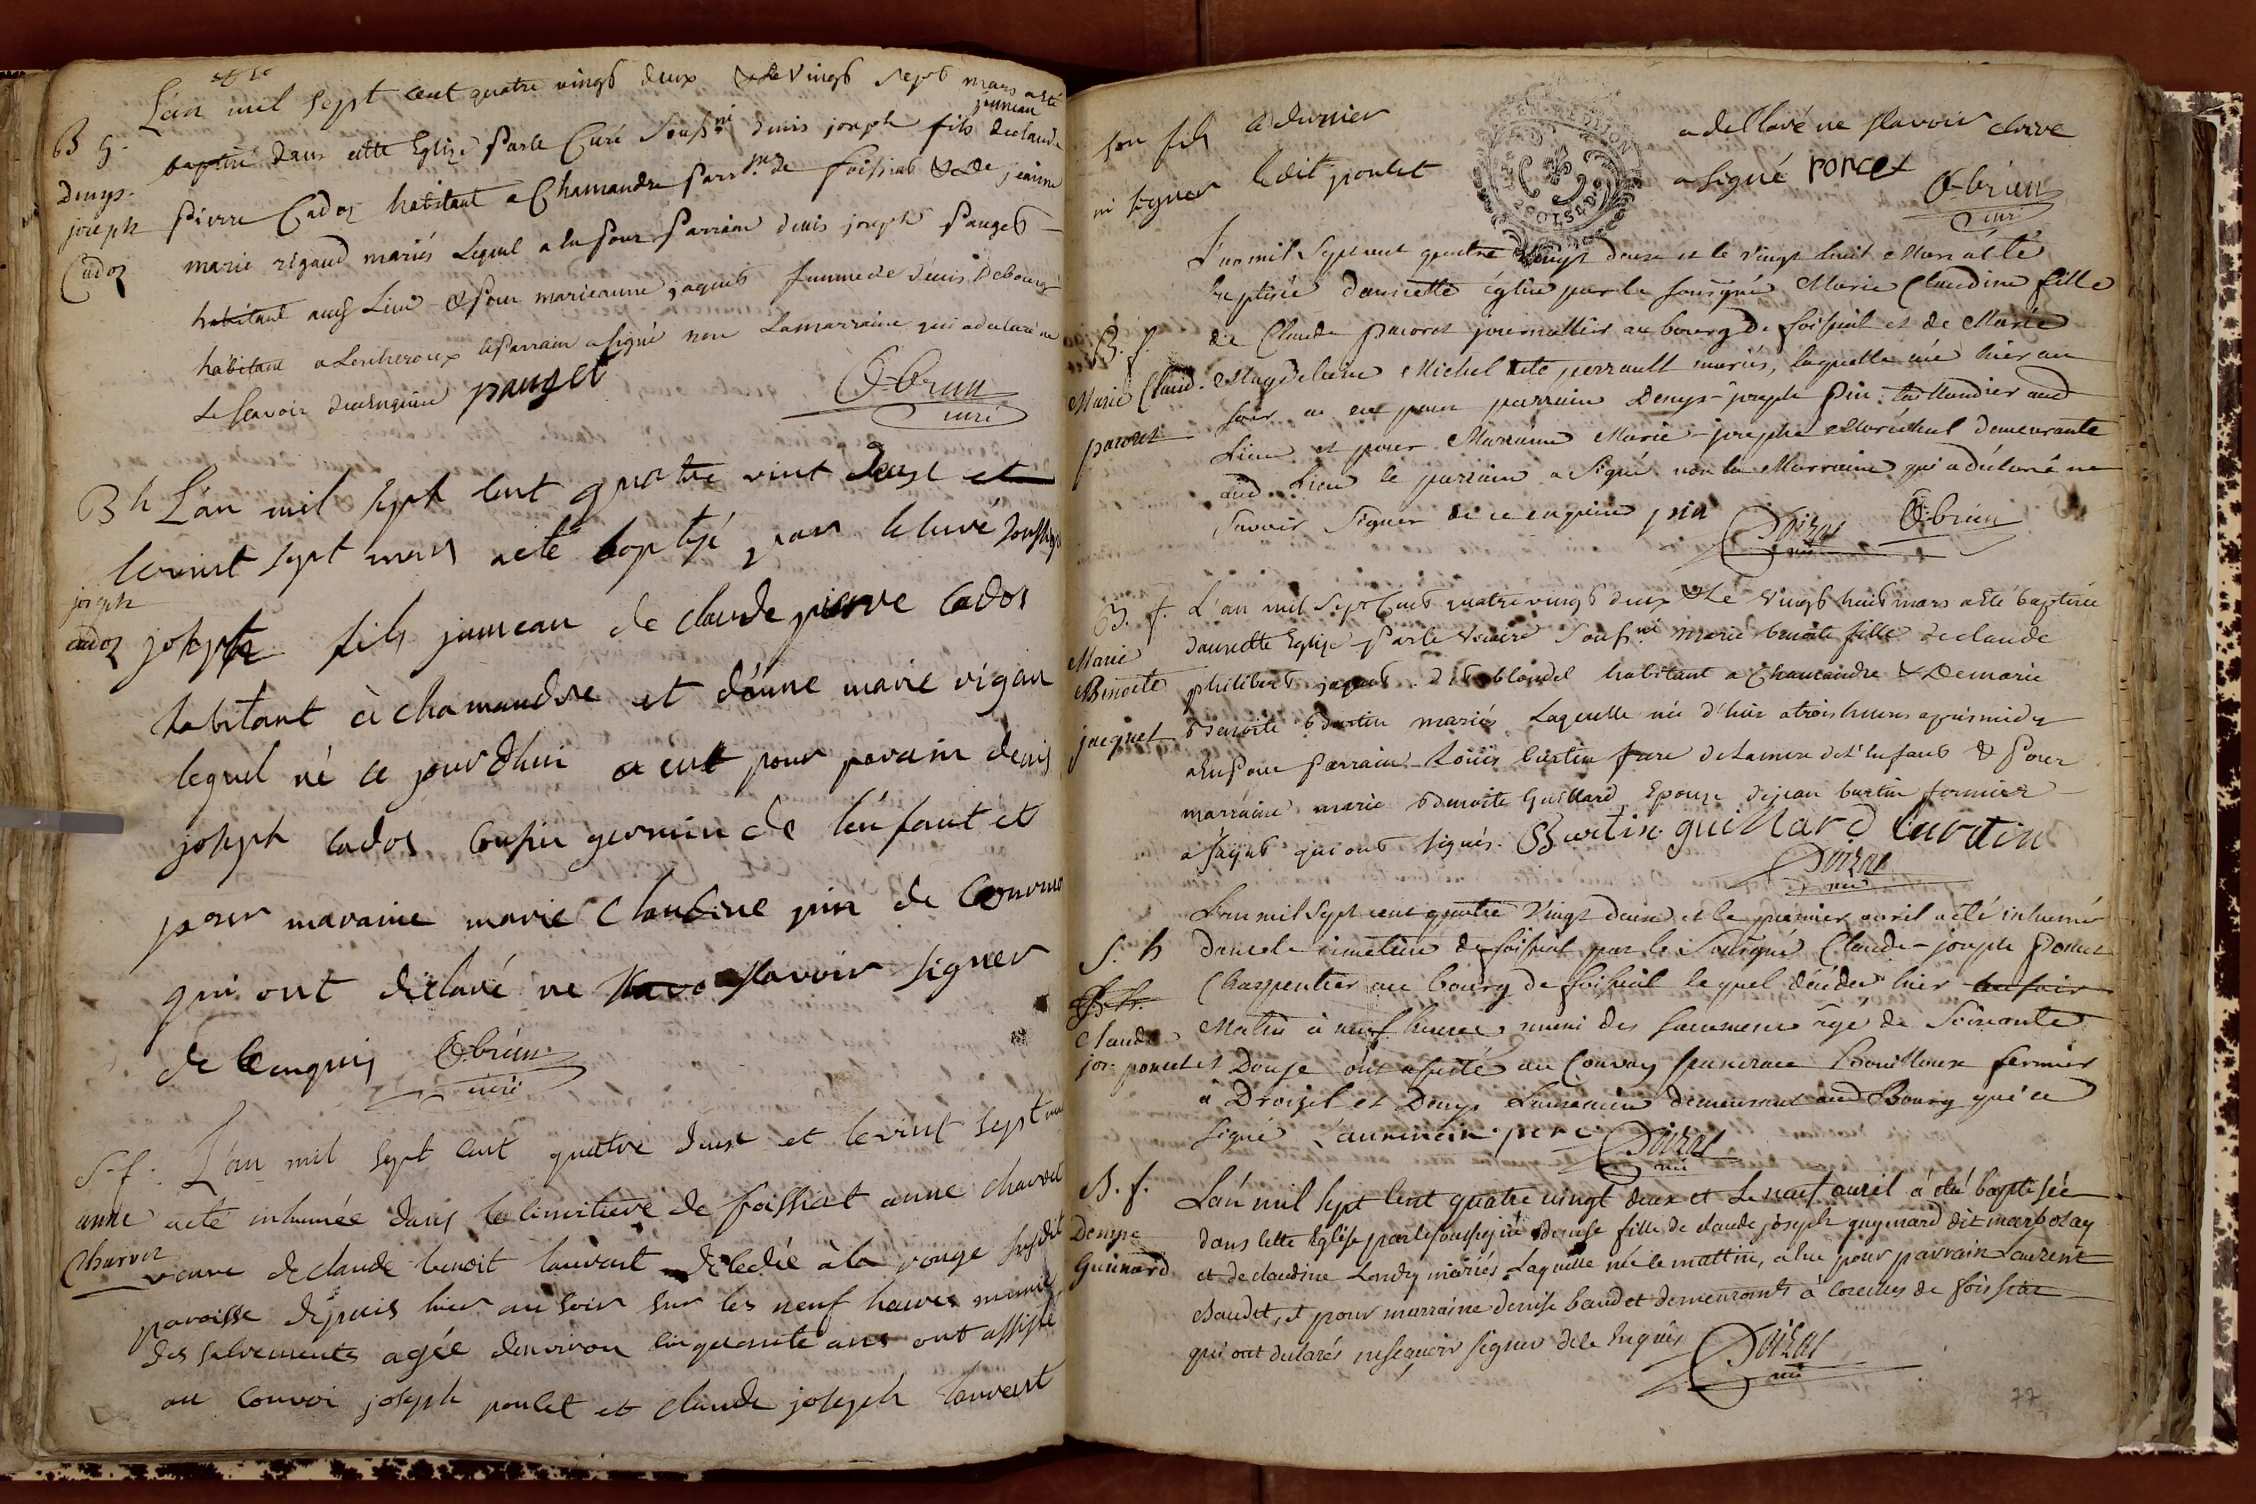 L'an mil sept cent quatre vingt deux & le vingt sept mars a été
jumeau
B h. baptisé dans cette Eglise par le Curé sousné denis joseph fils de claude
denys- joseph Cadoz
pierre Cadoz habitant a Chamandre parrse de foissiat & de jeanne
marie rigaud mariés lequel a eu pour parrain denis joseph pauget
habitant aud lieu & pour marieanne jaquet femme de denis Debourg
habitant a Lescheroux le parrain a signé non la marraine qui a declaré ne
le scavoir de ce enquise pauget
O-brun
curé
B h L'an mil sept cent quatre vint deux et
le vint sept mars a eté baptisé par le curé soussigné
joseph
cadoz joseph fils jumeau de claude pierre cados
habitant à chamandre et d'anne marie rigau
lequel né ce jourdhui a eut pour parain denis
joseph cados cousin germin de l'enfant et
pour maraine marie claudine pin de
qui ont déclaré ne scavoir signer
de ce enquis O-brun
curé
S. f. L'an mil sept cent quattre deux et le vint sept
anne a eté inhumée dans le cimitiere de foissiat anne
Charvet veuve de claude benoit decedée à la rouge susdit
paroisse depuis hier au soir sur les neuf heures munie
des sacrements agée d'environ cinquante ans ont assisté
au convoi joseph poulet et claude joseph
son fils a dernier a desclaré ne scavoir ecrire
ni signer ledit poulet a signé poncet
O-brun
curé
L'an mil sept cent quatre vingt deux et le vingt huit Mars a été
baptisée dans cette église par le sousigné Marie Claudine fille
B. f. de Claude pacoret journallier au bourg de foissiat et de Marie
Marie Claud. Magdeleine Michel dite perrault mariés, laquelle née hier au
soir a eu pour parrain Denys-joseph Pin taillandier aud
pacoret
Lieu et pour Marraine Marie-josephe Maréchal demeurante
aud. Lieu le parrain a signé non la Marraine qui a déclaré ne
savoir signer de ce enquise pin Doizat O-brun
B. f. L'an mil sept cent quatre vingt deux & le vingt huit mars a été baptisée
Marie dans cette Eglise par le vicaire sousné marie benoite fille de claude
Benoite philibert jaquet dit blondel habitant a Chamandre & de marie
jacquet benoite burtin mariés laquelle née d'hier a trois heures après midy
a eu pour parrain Louis burtin frere de la mere de l'enfant & pour
marraine marie benoite Guillard Epouse de jean burtin fermier
qui ont signés. Burtin guillard burtin
Doizat
L'an mil sept cent quatre vingt deux et le premier avril a été inhumé
S. h dans le cimetiere de foissiat par le sousigné Claude-joseph Poncet
Charpentier au bourg de foissiat lequel décédé hier au soir
Claude Matin à neuf heures muni des sacremens âgé de soixante
jos. poncet et Douze ont assisté au Convoy fermier
à et Denys demeurant aud Bourg qui a
signé Doizat
B. f. L'an mil sept cent quatre vingt deux et le neuf avril a été baptisée
Denise dans cette Eglise par le soussigné Denise fille de claude joseph guynard dit
Guinard et de claudine Landry mariés Laquelle née le mattin, a eue pour parrain Laurent
Baudet, et pour marraine denise baudet demeurants à de foissiat
qui ont declarés ne sçavoir signer de ce Enquis Doizat
77